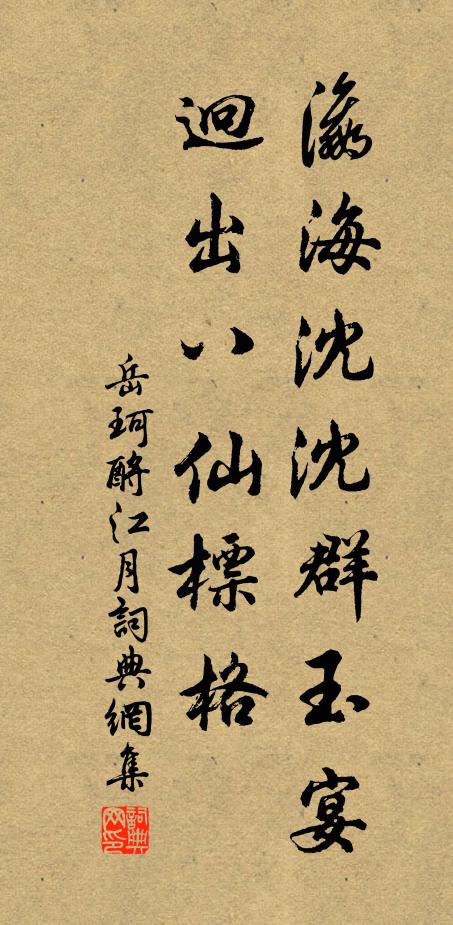 瀛海沈沈群玉宴
迥出八仙標格
岳珂酹江月詞典網集
詞典网印